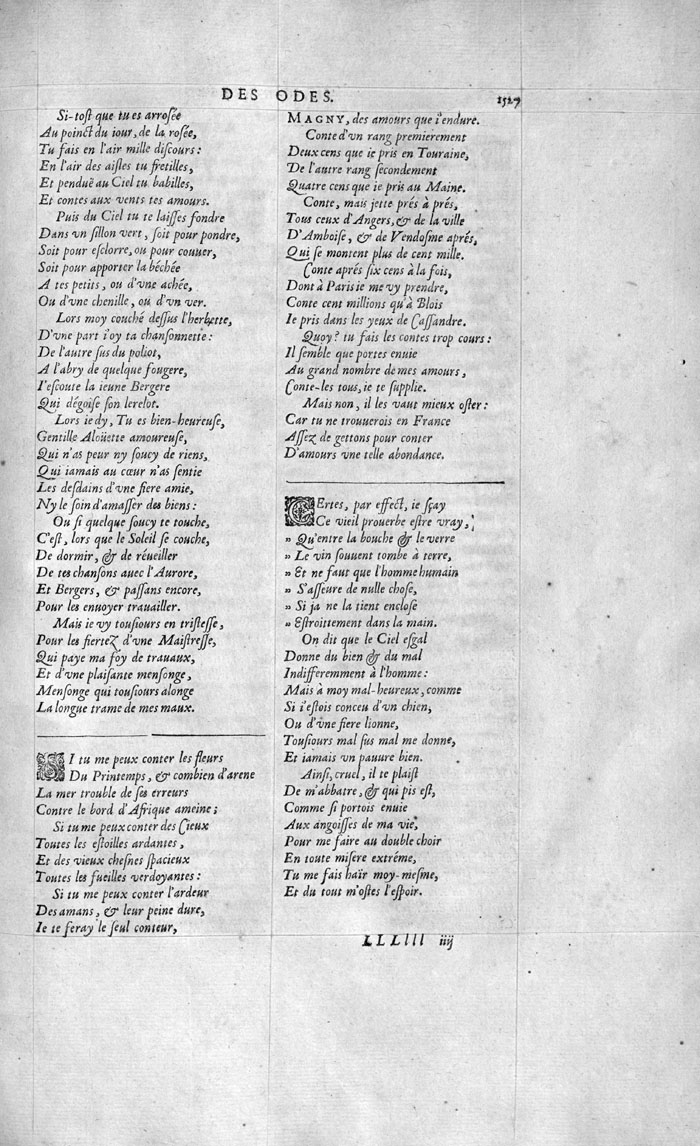 DES ODES. 1527
Si-tost que tu es arrosée
Au poinct du iour, de la rosée,
Tu fais en l'air mille discours:
En l'air des aisles tu fretilles,
Et penduë au Ciel tu babilles,
Et contes aux vents tes amours.
Puis du Ciel tu te laisses fondre
Dans vn sillon vert, soit pour pondre,
Soit pour esclorre, ou pour couuer,
Soit pour apporter la béchée
A tes petits, ou d'vne achée,
Ou d'vne chenille, ou d'vn ver.
Lors moy couché dessus l'herbette,
D'vne part i'oy ta chansonnette:
De l'autre sus du poliot,
A l'abry de quelque fougere,
I'escoute la ieune Bergere
Qui dégoise son lerelot.
Lors ie dy, Tu es bien-heureuse,
Gentille Aloüette amoureuse,
Qui n'as peur ny soucy de riens,
Qui iamais au cœur n'as sentie
Les desdains d'vne fiere amie,
Ny le soin d'amasser des biens:
Ou si quelque soucy te touche,
C'est, lors que le Soleil se couche,
De dormir, & de réueiller
De tes chansons auec l'Aurore,
Et Bergers, & passans encore,
Pour les enuoyer trauailler.
Mais ie vy tousiours en tristesse,
Pour les fiertez d'vne Maistresse,
Qui paye ma foy de trauaux,
Et d'vne plaisante mensonge,
Mensonge qui tousiours alonge
La longue trame de mes maux.
SI tu me peux conter les fleurs
Du Printemps, & combien d'arene
La mer trouble de ses erreurs
Contre le bord d'Afrique ameine;
Si tu me peux conter des Cieux
Toutes les estoilles ardantes,
Et des vieux chesnes spacieux
Toutes les fueilles verdoyantes:
Si tu me peux conter l'ardeur
Des amans, & leur peine dure,
Ie te feray le seul conteur,
MAGNY, des amours que i'endure.
Conte d'vn rang premierement
Deux cens que ie pris en Touraine,
De l'autre rang secondement
Quatre cens que ie pris au Maine.
Conte, mais jette prés à prés,
Tous ceux d'Angers, & de la ville
D'Amboise, & de Vendosme aprés,
Qui se montent plus de cent mille.
Conte aprés six cens à la fois,
Dont à Paris ie me vy prendre,
Conte cent millions qu'à Blois
Ie pris dans les yeux de Cassandre.
Quoy? tu fais les contes trop cours:
Il semble que portes enuie
Au grand nombre de mes amours,
Conte-les tous, ie te supplie.
Mais non, il les vaut mieux oster:
Car tu ne trouuerois en France
Assez de gettons pour conter
D'amours vne telle abondance.
CErtes, par effect, ie sçay
Ce vieil prouerbe estre vray,
» Qu'entre la bouche & le verre
» Le vin souuent tombe à terre,
» Et ne faut que l'homme humain
» S'asseure de nulle chose,
» Si ja ne la tient enclose
» Estroittement dans la main.
On dit que le Ciel esgal
Donne du bien & du mal
Indifferemment à l'homme:
Mais à moy mal-heureux, comme
Si i'estois conceu d'vn chien,
Ou d'vne fiere lionne,
Tousiours mal sus mal me donne,
Et iamais vn pauure bien.
Ainsi, cruel, il te plaist
De m'abbatre, & qui pis est,
Comme si portois enuie
Aux angoisses de ma vie,
Pour me faire au double choir
En toute misere extréme,
Tu me fais haïr moy-mesme,
Et du tout m'ostes l'espoir.
LLLlll iiij